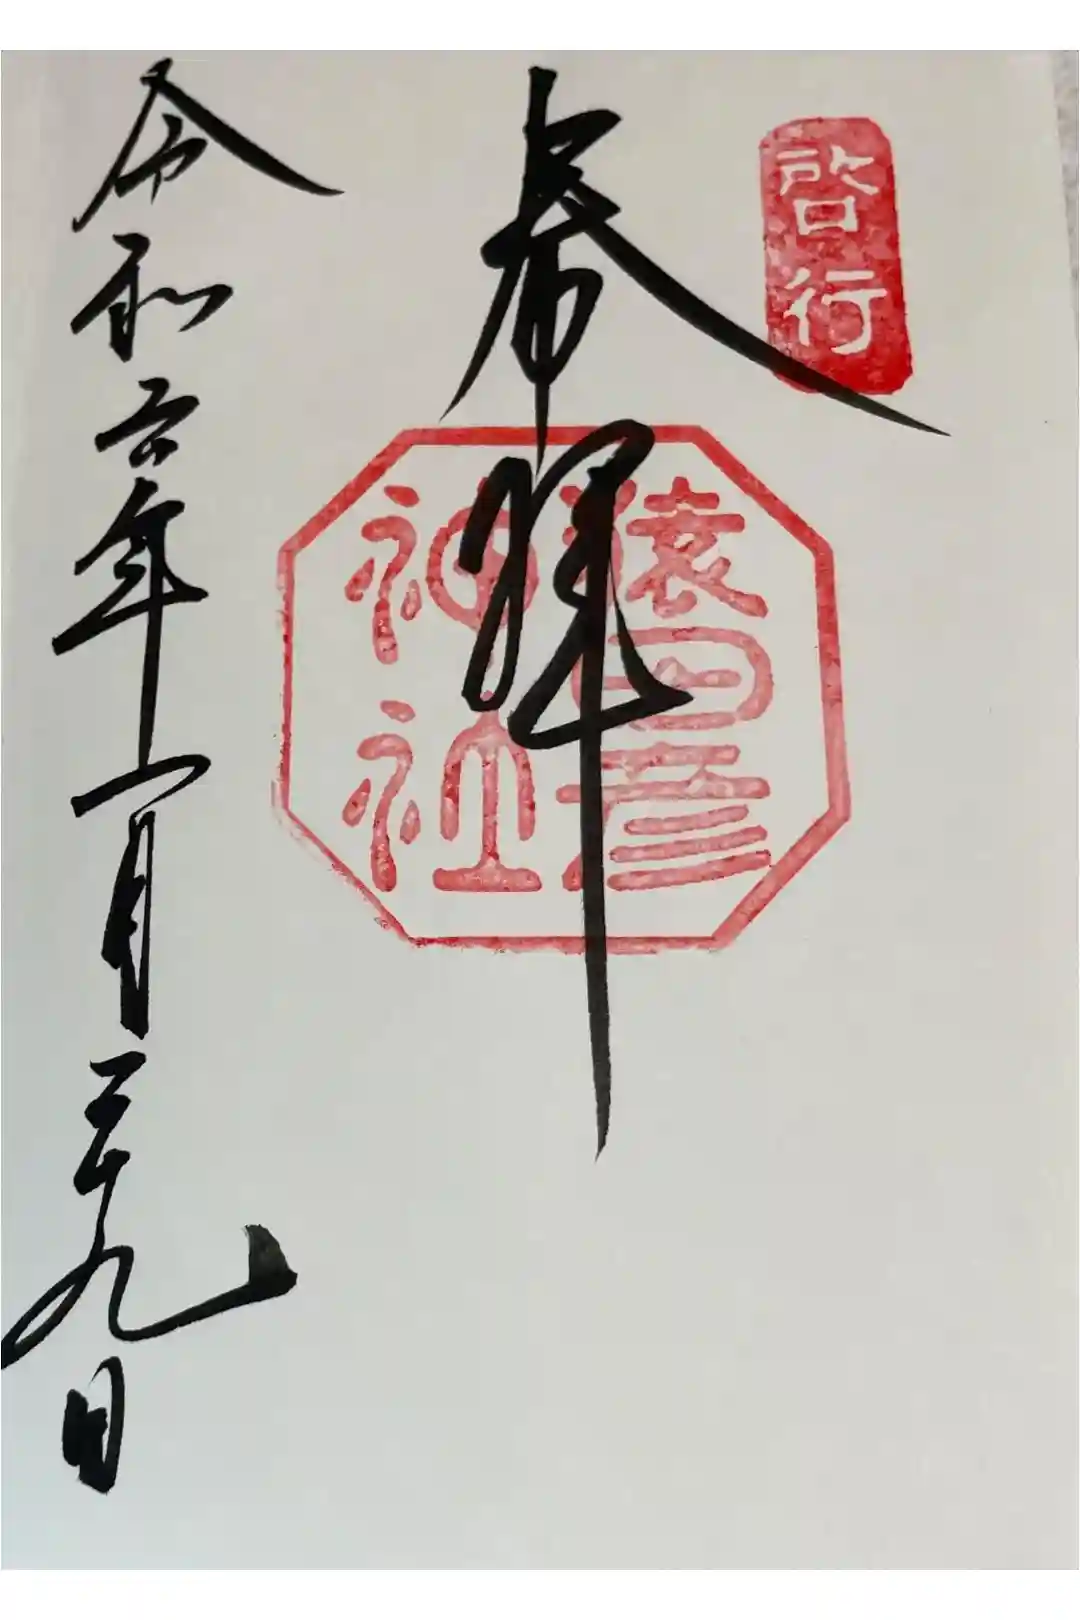 啓行
奉拝
猿田彦
神社
令和六年二月二十九日